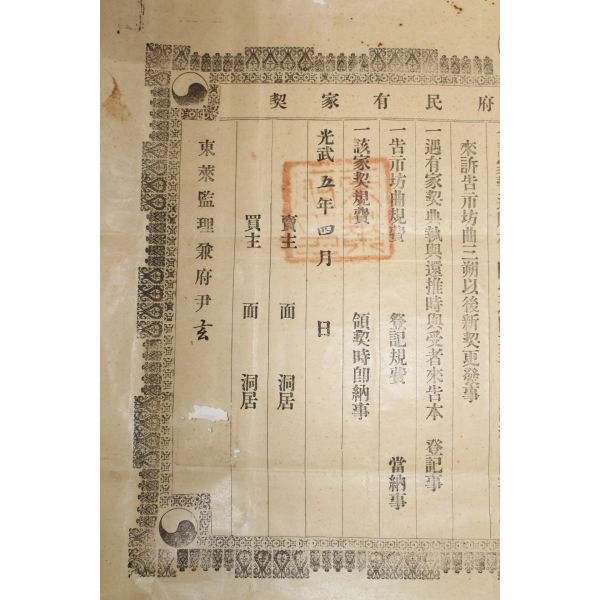 府民有家契
來訴告示坊曲三朔以後新契更發事
一遇有家契典執與還推時與受者來告本 登記事
一告示坊曲規費 登記規費 當納事
一該家契規費 領契時卽納事
光武五年四月 日
賣主 面 洞居
買主 面 洞居
東萊監理兼府尹玄